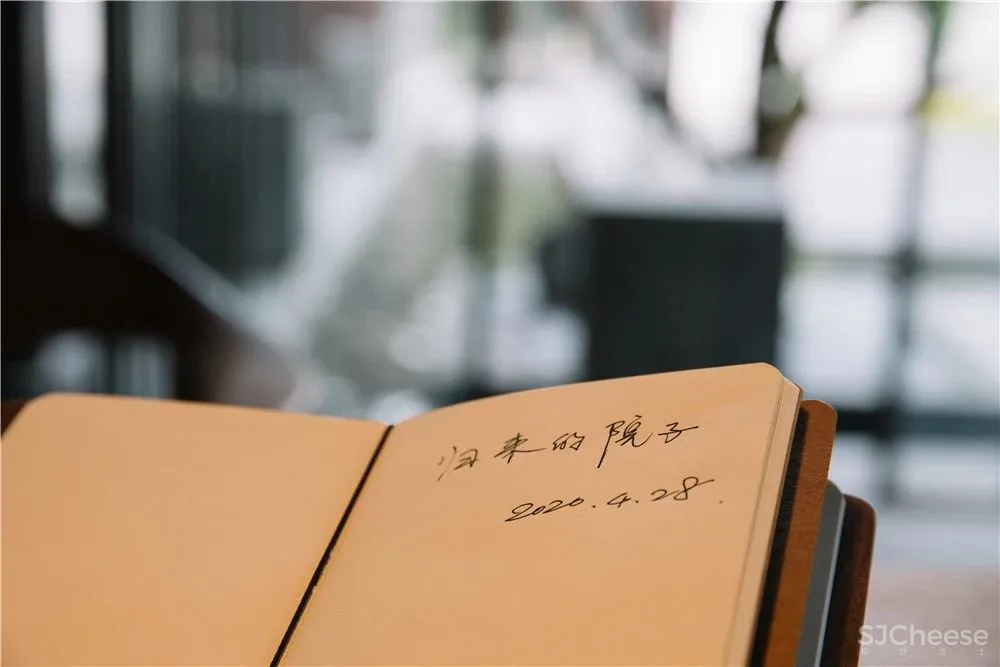 归来的院子
2020.4.28.
SJCheese
设计芝士